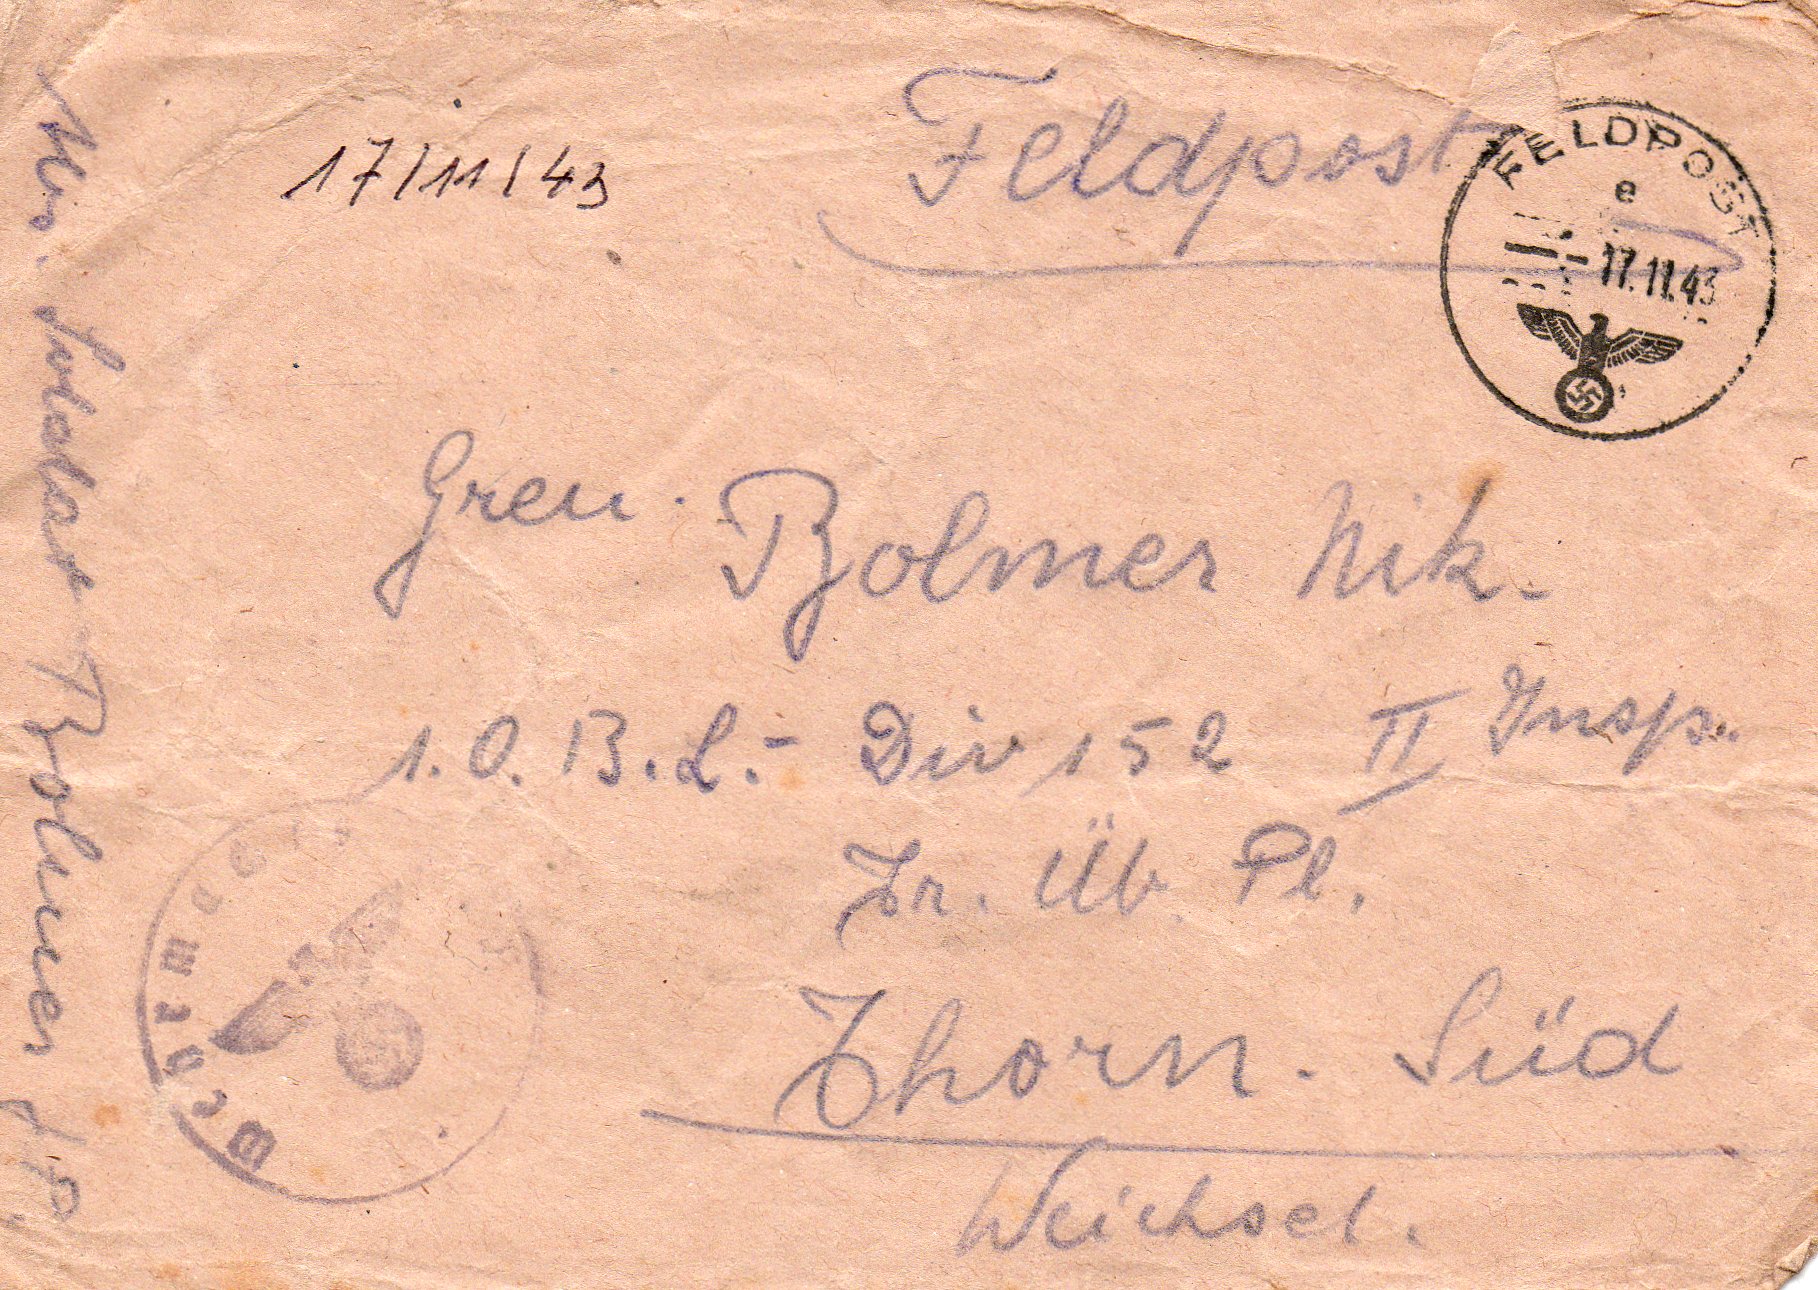 17/11/43
Feldpost
FELDPOST
e
17.11.43
Gren. Bolmer Nik.
1. O. B. L. - Div 152 II Insp.
Tr. Üb. Pl.
Thorn. Süd
Weichsel.
Soldat Bolmer